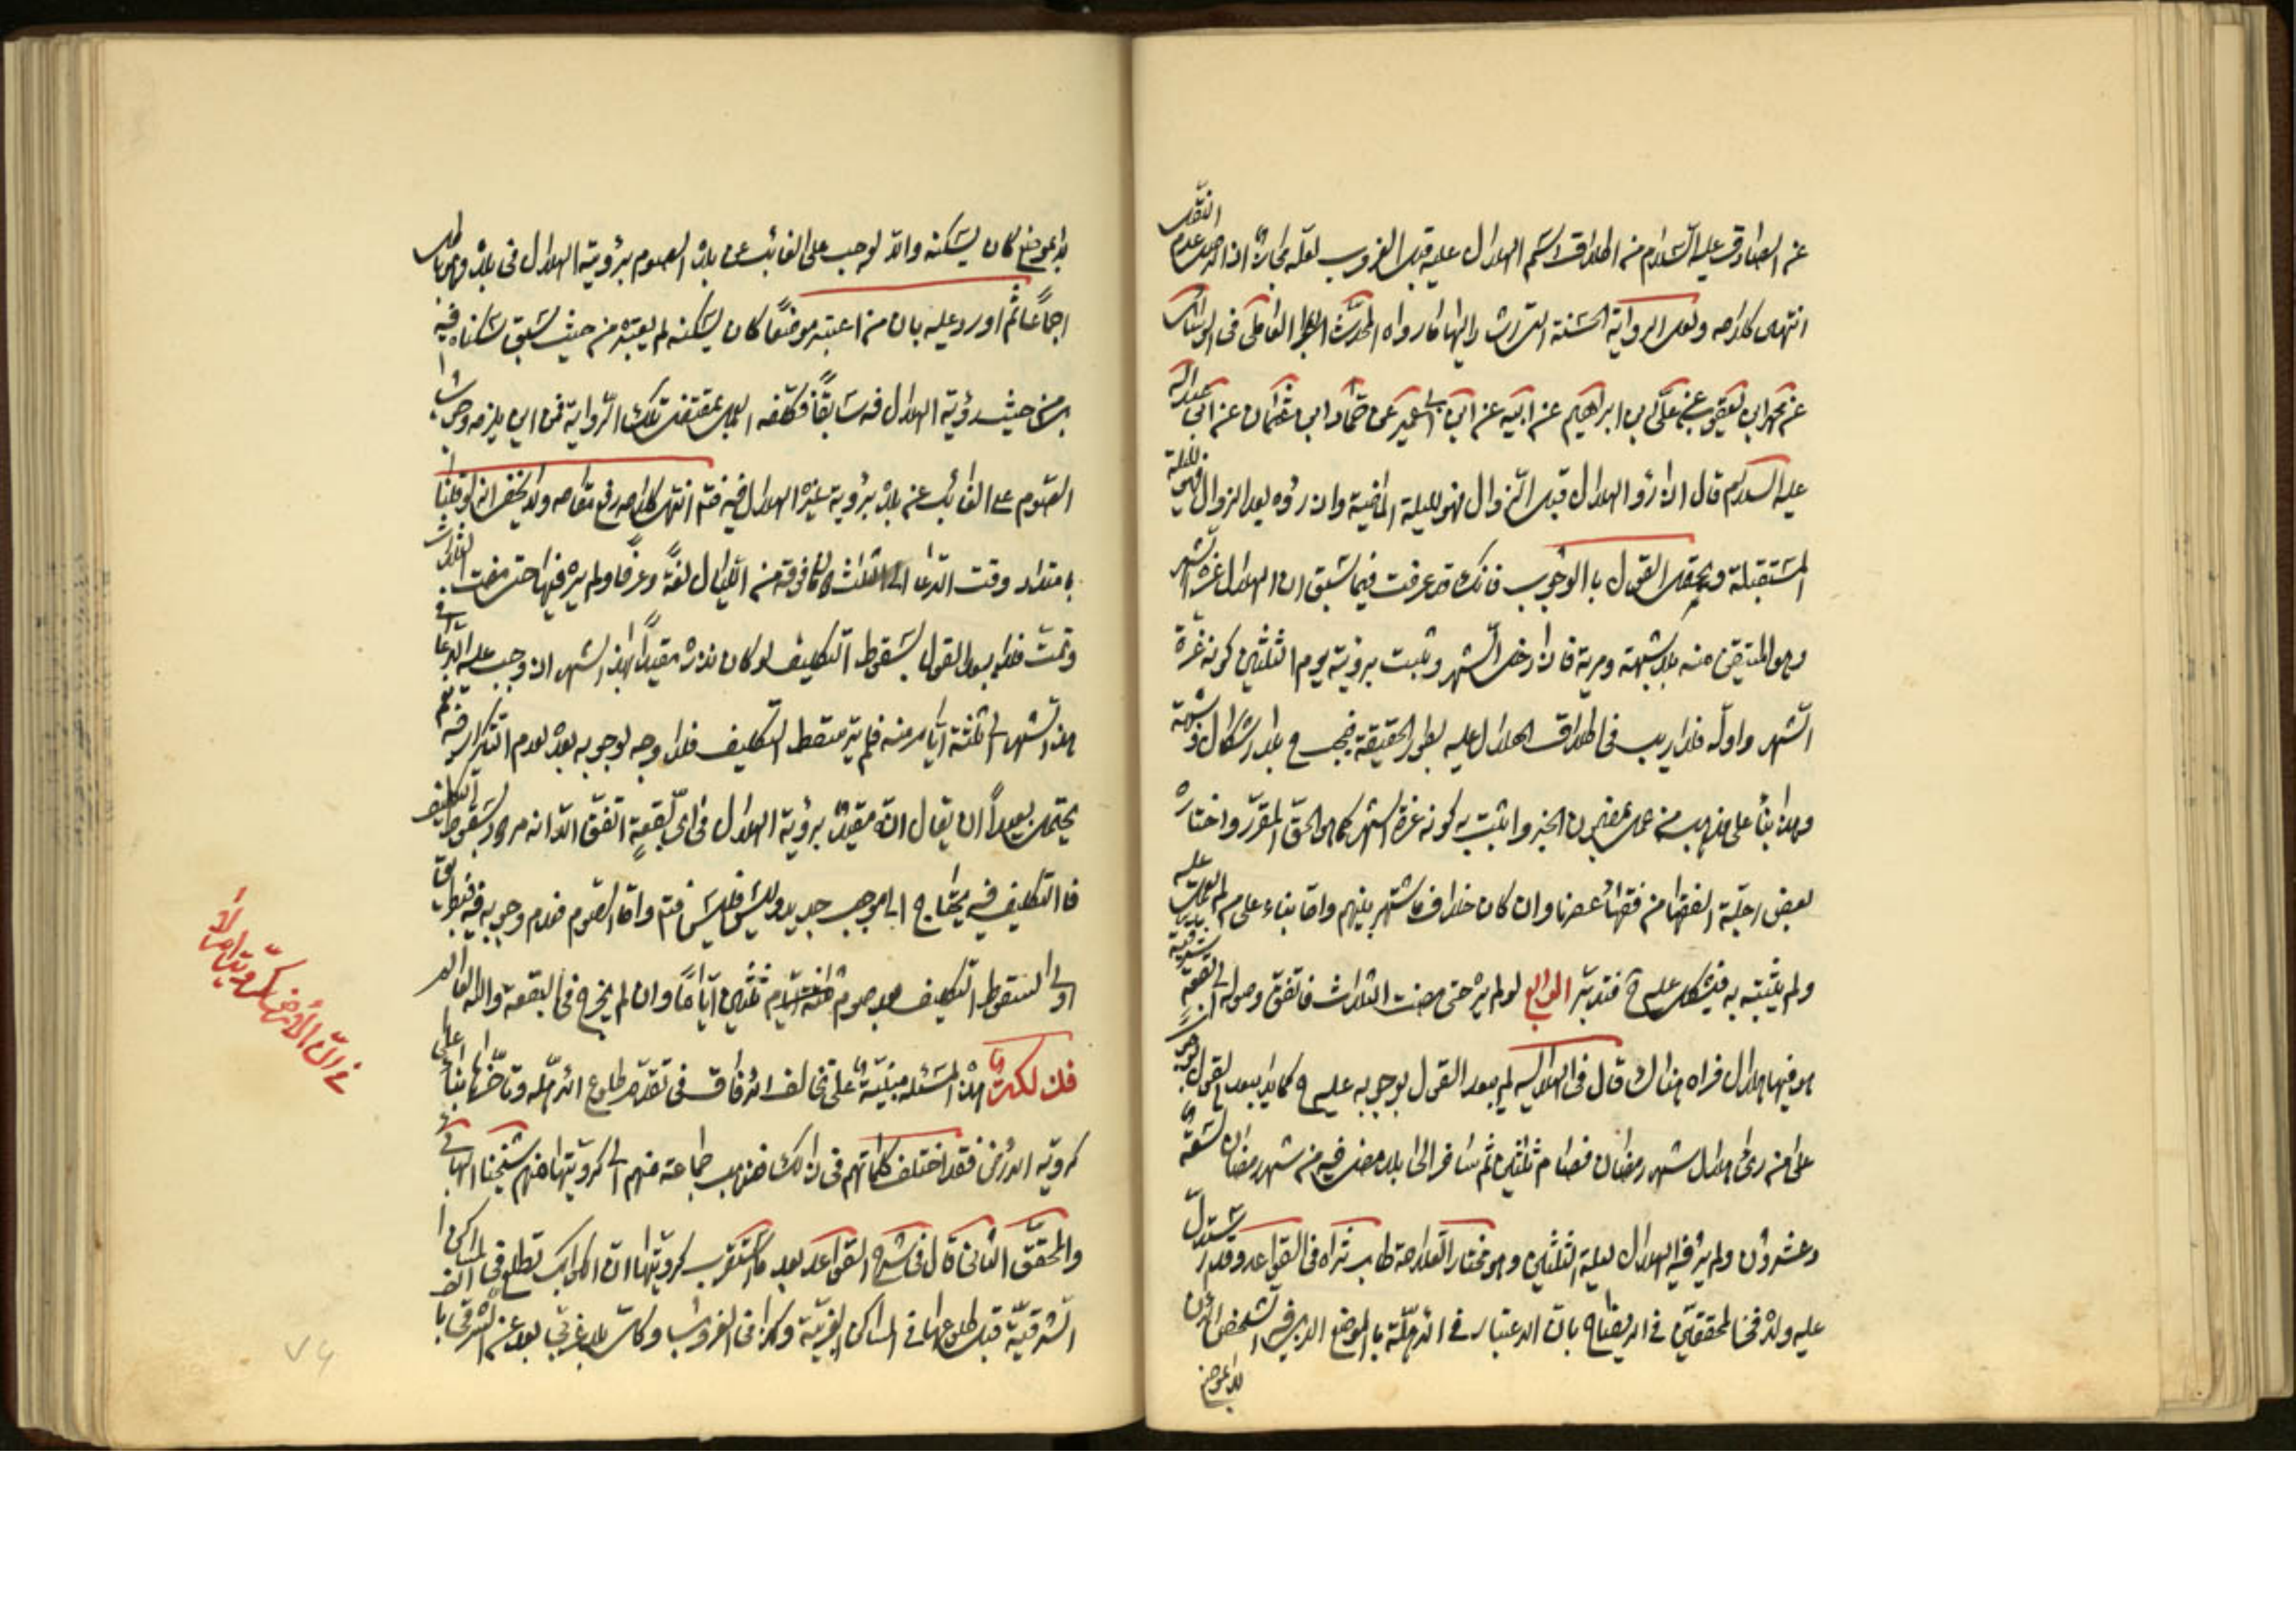 عن الصادق عليه السلام من اطلاق اسم الهلال عليه قبل الغروب لعله مجازا اذ الاصل عدم النقل
انتهى كلامه ولعل الرواية الحسنة التى اشار اليها ما رواه المحدث الحر العاملى فى الوسائل
عن محمد ابن يعقوب عن على بن ابراهيم عن ابيه عن ابن ابى عمير عن حماد ابن عثمان عن ابى عبد الله
عليه السلام قال اذا رؤا الهلال قبل الزوال فهو لليلة الماضية وان رؤه بعد الزوال فهو لليلة
المستقبلة ويحتمل القول با الوجوب فانك قد عرفت فيما سبق ان الهلال غرة الشهر
وهو المتيقن منه بلا شبهة ومرية فاذا دخل الشهر وثبت برؤيته يوم الثلثين كونه غرة
الشهر واوله فلا ريب فى اطلاق الهلال عليه بطور الحقيقة فيجب ح بلا اشكال وشبهة
وهذا بناً على مذهب من عمل بمضمون الخبر واثبت به كونه غرة الشهر كما هو الحق المقرر واختاره
بعض اجلة الفقها من فقهاء عصرنا وان كان خلاف ما اشتهر بينهم واما بناء على من لم يعمل عليه
ولم يثبته به فيشكل عليه ح فتدبر الرابع لو لم يره حتى مضت الثلاث فاتفق وصوله الى بقعة شرقية
هو فيها هلال فراه هناك قال فى الهلالية لم يبعد القول بوجوبه عليه ح كما لا يبعد القول بوجوب الصوم
على من رى هلال شهر رمضان فصام ثلثين ثم سافر الى بلد مضى فيه من شهر رمضان تسعة
وعشرون ولم ير فيه الهلال ليلة الثلثين وهو مختار العلامة طاب ثراه فى القواعد وقد استدل
عليه ولده فخر المحققين فى الايضاح بان الاعتبار فى الاهلة با لموضع الذى فيه الشخص الان
لا بموضع
لا بموضع كان يسكنه والا لوجب على الغائب عن بلده الصوم برؤية الهلال فى بلده وهو باطل
اجماعًا ثم اورد عليه بان من اعتبر موضعًا كان يسكنه لم يعتبره من حيث سبق سكناه فيه
بل من حيث رؤية الهلال فيه سابقًا فكلفه العمل بمقتضى تلك الرواية فمن اين يلزمه وجوب
الصوم على الغائب عن بلده برؤية غيره الهلال فيه فتم انتهى كلامه رفع مقامه ولا يخفى انا لو قلنا
بامتداد وقت الدعا الى الثلاث وما فوقه من الليال لغةً وعرفًا ولم يره فيها حتى مضت الثلاث
وتمت فلا يبعد القول بسقوط التكليف لو كان نذره مقيدًا بهذا الشهر اذ وجب عليه الدعا فى
هذا الشهر الى ثلثة ايام منه فلم يره فسقط التكليف فلا وجه لوجوبه بعده لعدم التذكار فيه نعم
يحتمل بعيداً ان يقال انه مقيد برؤية الهلال فى اى بقعةٍ اتفق الا انه مردود بسقوط التكليف
فا التكليف فيه يحتاج الى موجب جديد وليس فليس فتم واما الصوم فعدم وجوبه فيه بطريق
اولى لسقوط التكليف بعد صوم ثلثين اياما وان لم يخرج فى البقعة والله العالم
فلك لكت هذه المسئله مبتنية على تخالف الافاق فى تقدم طلوع الاهله وتاخرها بناً على
كروية الارض فقد اختلف كلماتهم فى ذلك فذهب جماعة منهم الى كرويتها منهم شيخنا البهائى
والمحقق الثانى قال فى شرح القواعد بعد ما استقرب كرويتها ان الكواكب تطلع فى المساكن
الشرقية قبل طلوعها فى المساكن الغربية وكذا فى الغروب وكل بلد غربى بعد عن الشرقى با الف
فى ان الارض كروية ام لا
٧٤